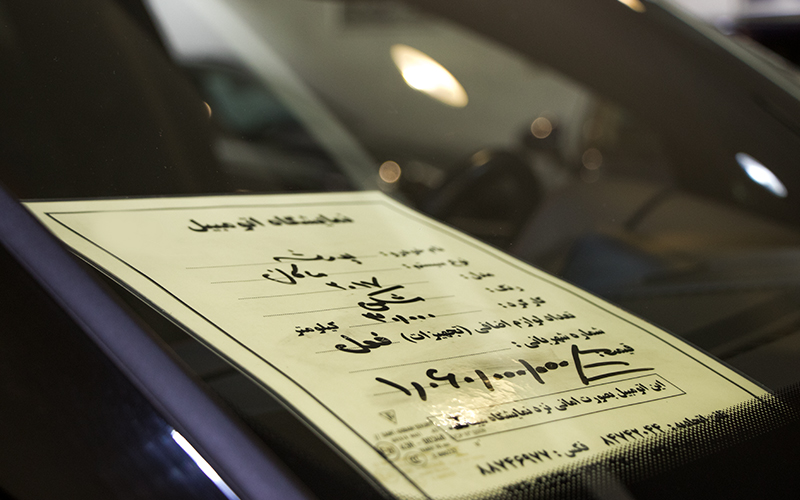 نمایشگاه اتومبیل
نام خودرو: پورشه
نوع سیستم: ماکان
مدل: ۲۰۱۷
رنگ: مشکی
کارکرد: ۳۰/۰۰۰ کیلومتر
تعداد لوازم اضافی (تجهیزات) فعلی
شماره شهربانی:
قیمت
این اتومبیل بصورت امانی نزد نمایشگاه میباشد
۸۴۷۴۲۰۴۴ فکس: ۸۸۷۴۶۹۷۷